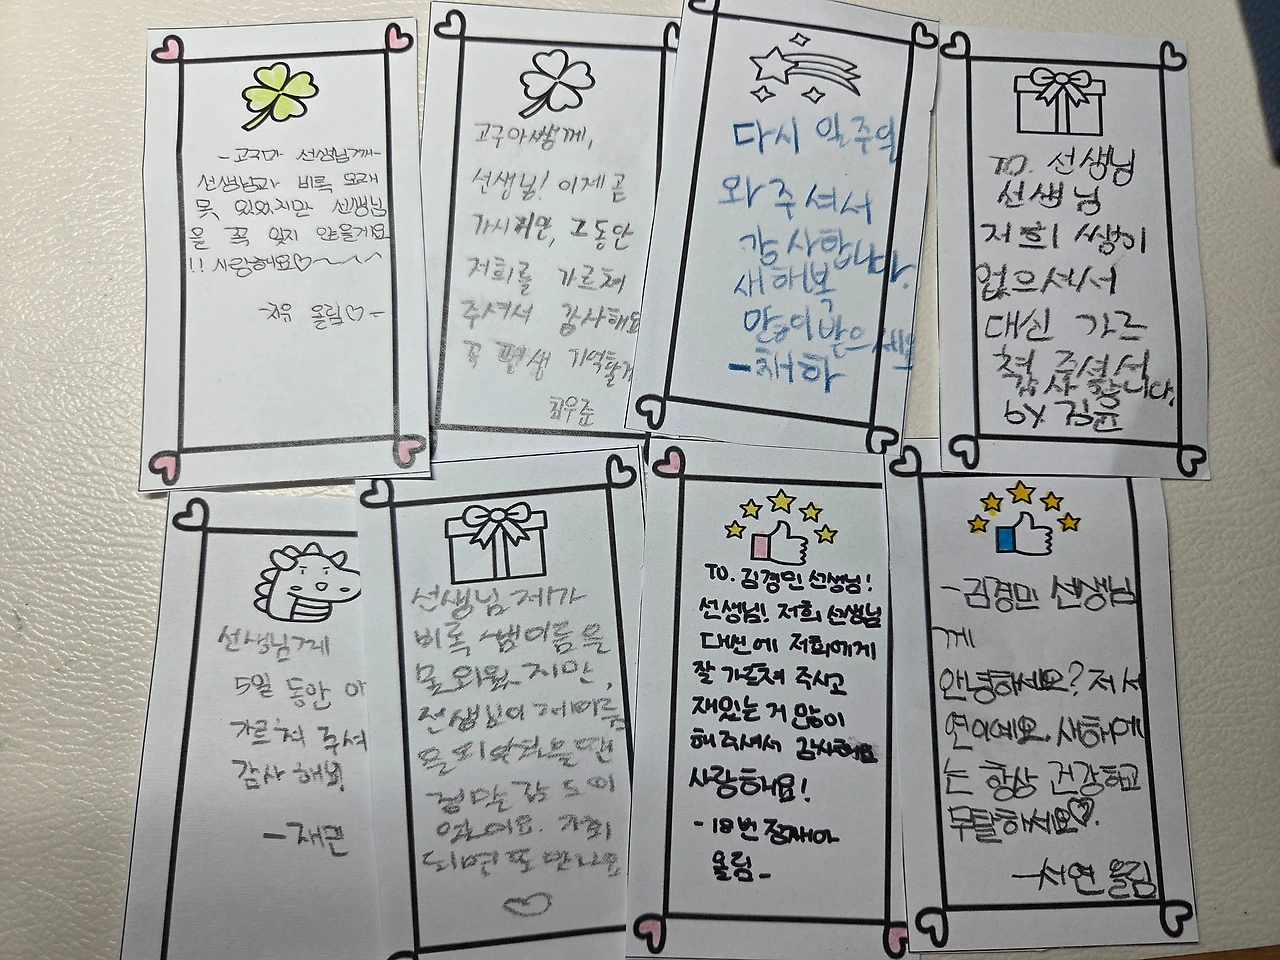 -고구마 선생님께-
선생님과 비록 오래
못 있었지만 선생님
을 꼭 잊지 않을게요
!! 사랑해요♡~~~
-지유 올림♡-
고구마쌤께,
선생님! 이제 곧
가시지만, 그동안
저희를 가르쳐
주셔서 감사해요
꼭 평생 기억할게
최우준
다시 일주일
와 주셔서
감사합니다.
새해복
많이받으세요
-채하
TO. 선생님
선생님
저희 쌤이
없으셔서
대신 가르
쳐 주셔서
감사합니다.
by 김윤
선생님께
5일 동안
가르쳐 주셔
감사해요.
-재민
선생님 제가
비록 쌤이름을
못 외웠지만,
선생님이 제이름
을 외워줬을 땐
정말 감동이
었어요.
되면 또 만나요
♡
TO. 김경민 선생님!
선생님! 저희 선생님
대신에 저희에게
잘 가르쳐 주시고
재밌는 거 많이
해 주셔서 감사해요
사랑해요!
-18번 정재아
올림-
-김경민 선생님
께
안녕하세요? 저 서
연이에요. 새해에
는 항상 건강하고
무탈하세요♡.
-서연 올림